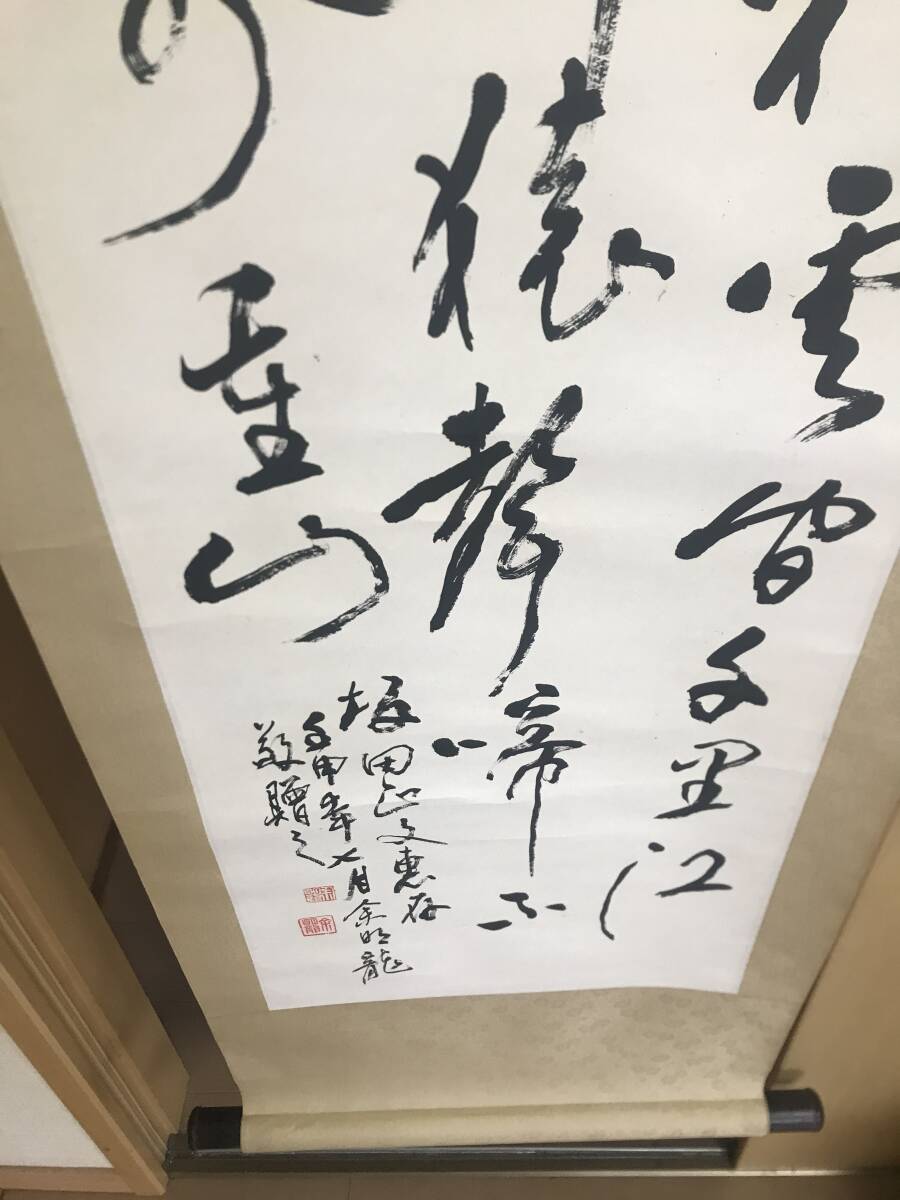 彩雲間千里江
猿聲啼不
重山
坂田正文惠存
壬申年七月余明龍
敬贈之